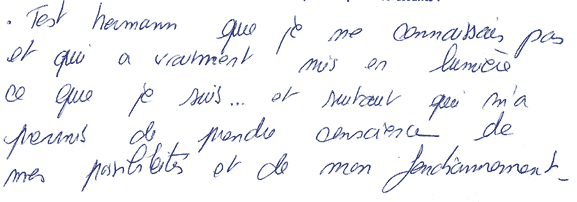 . Test hermann que je ne connaissais pas
et qui a vraiment mis en lumière
ce que je suis... et surtout qui m'a
permis de prendre conscience de
mes possibilités et de mon fonctionnement_